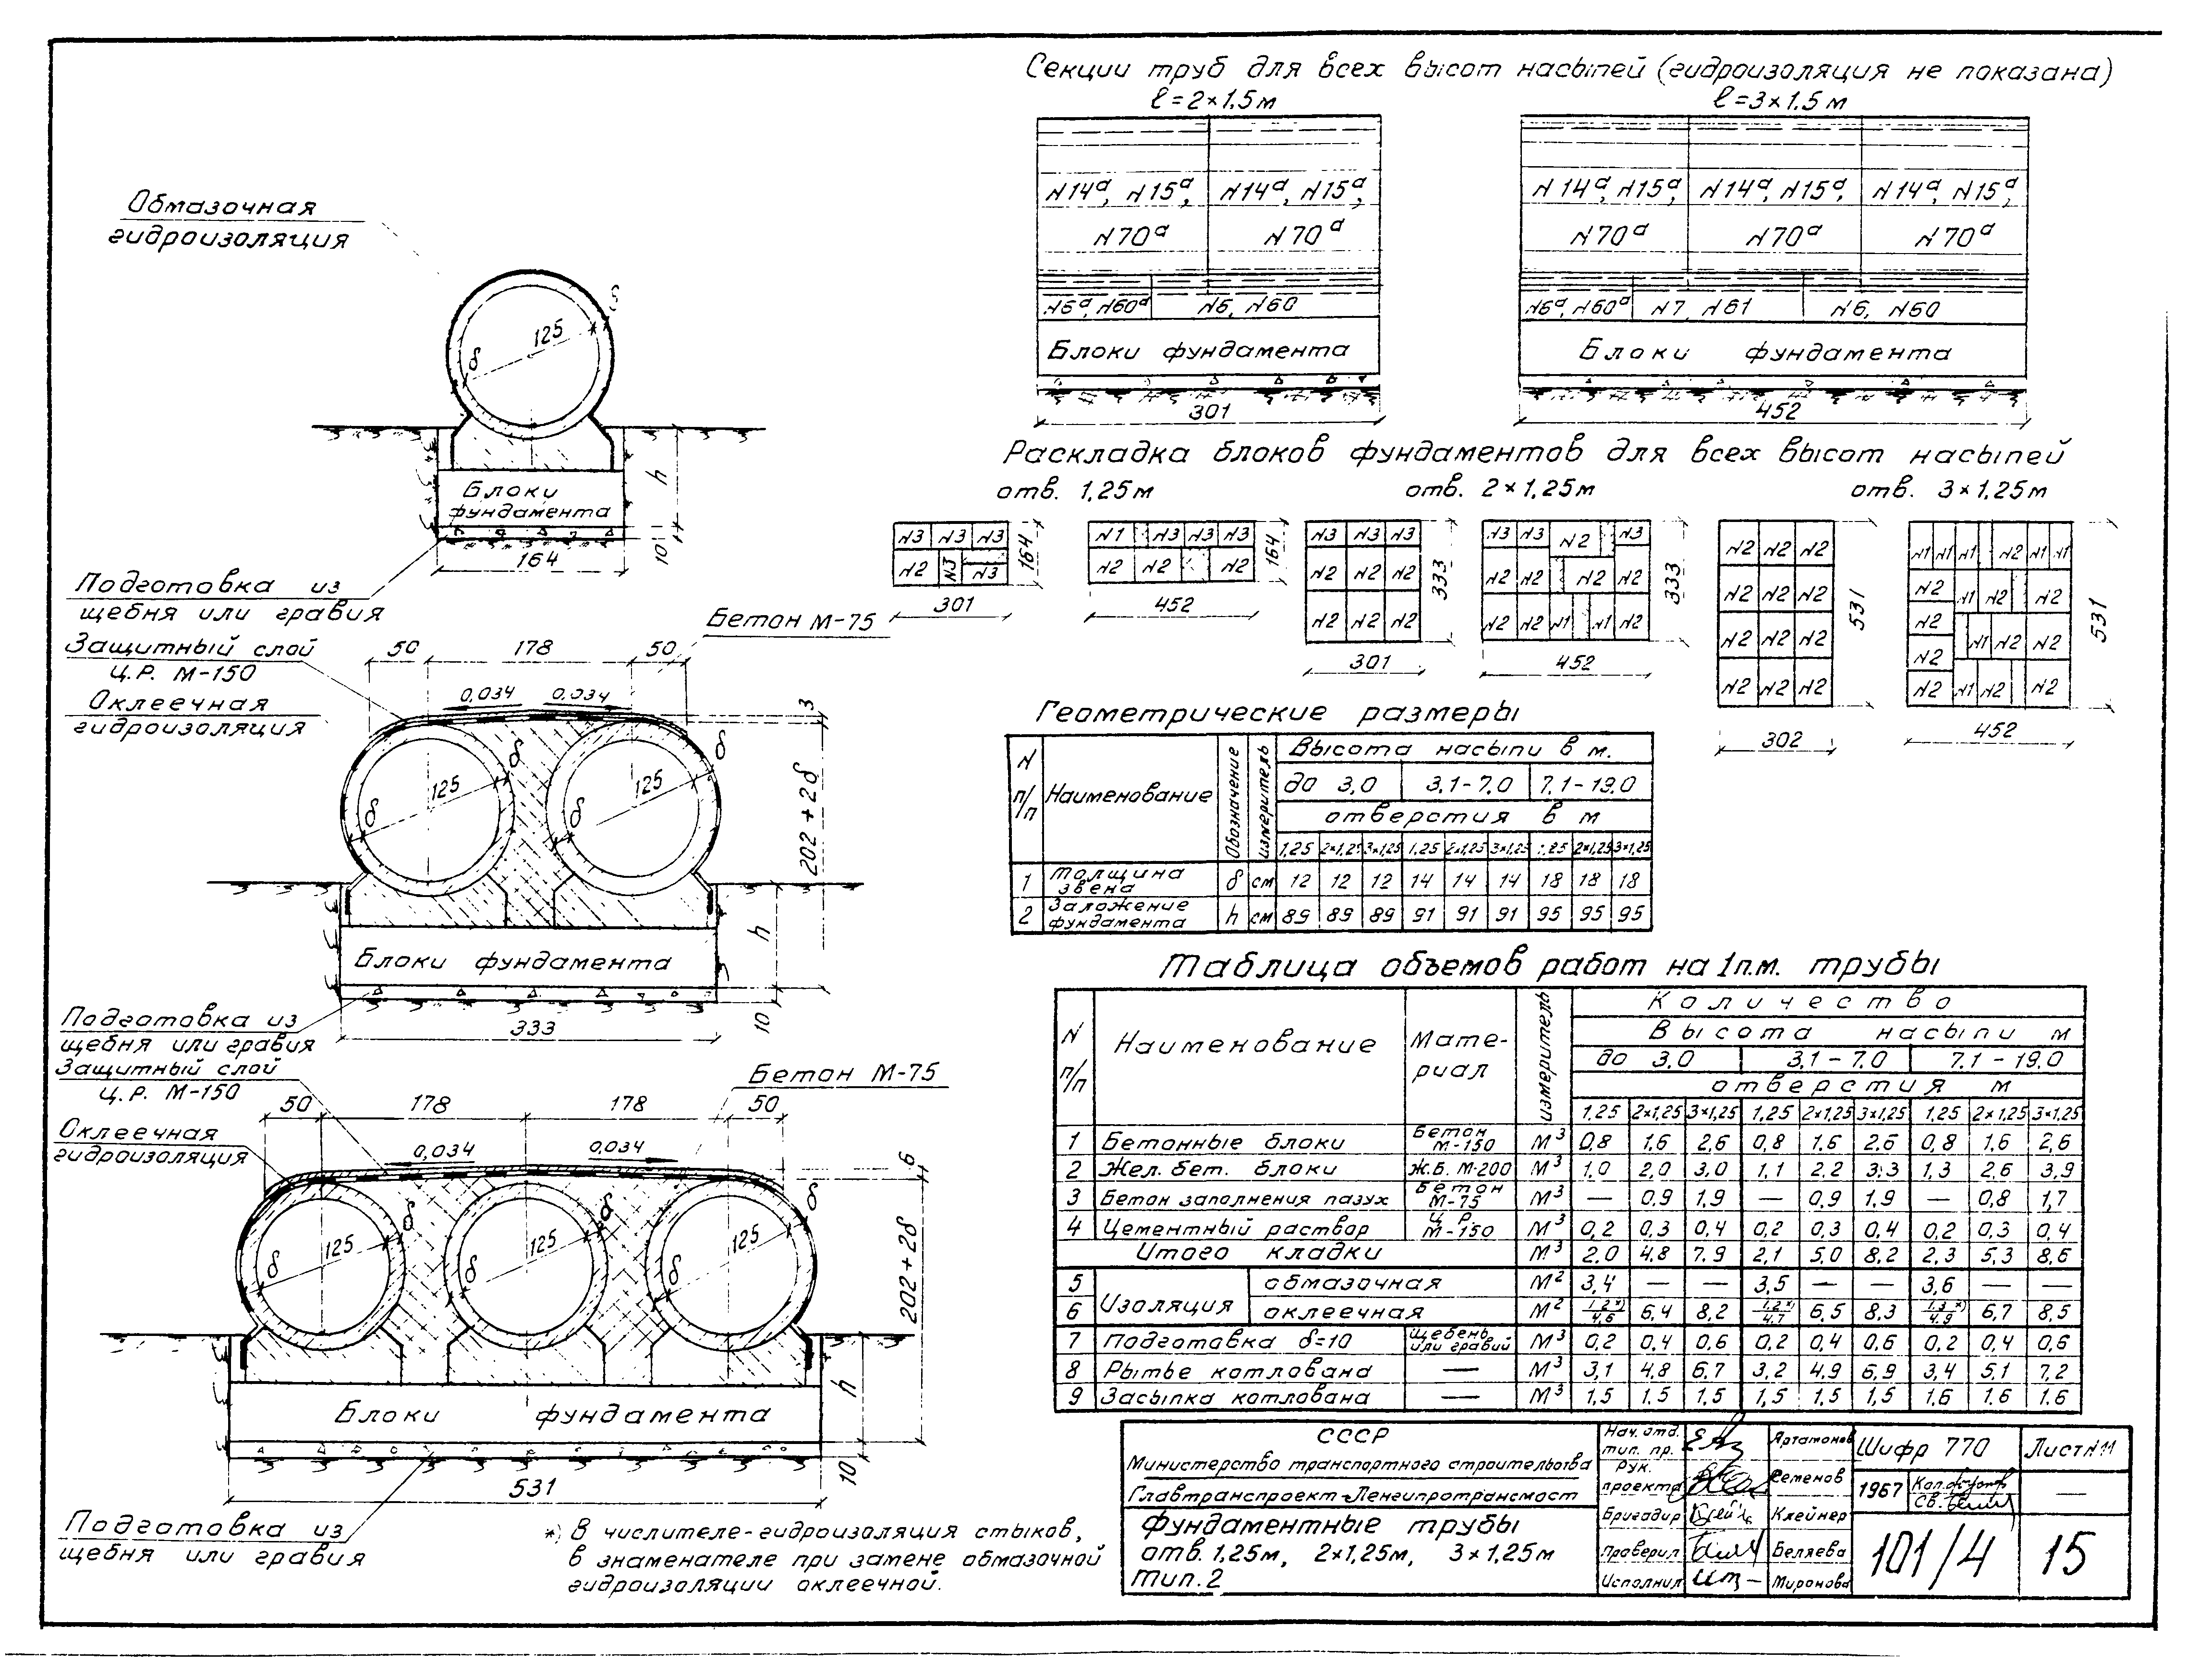 Секции труб для всех высот насыпей (гидроизоляция не показана)
ℓ=2×1.5м
ℓ=3×1.5м
N14а, N15а, N14а, N15а,
N70а N70а
N6а, N60а N6, N60
Блоки фундамента
301
N14а, N15а, N14а, N15а, N14а, N15а,
N70а N70а N70а
N6а, N60а N7, N61 N6, N60
Блоки фундамента
452
Обмазочная
гидроизоляция
125
δ
δ
h
Блоки
фундамента
10
164
Подготовка из
щебня или гравия
Раскладка блоков фундаментов для всех высот насыпей
отв. 1,25м
отв. 2×1,25м
отв. 3×1,25м
N3 N3 N3
N2 N3 N3
164
301
N1 N3 N3 N3
N2 N2 N2
164
452
N3 N3 N3
N2 N2 N2
N2 N2 N2
333
301
N3 N3 N2 N3
N2 N2 N2 N2
N2 N2 N1 N1 N2
333
452
N2 N2 N2
N2 N2 N2
N2 N2 N2
N2 N2 N2
531
302
N1 N1 N1 N2 N1 N1
N2 N1 N2 N2
N2 N1 N2 N2
N2
N2 N1 N2 N2
531
452
Защитный слой
Ц.Р. М-150
Оклеечная
гидроизоляция
Бетон М-75
50 178 50
0,034 0,034
3
125 125
δ δ δ δ
202+2δ
h
Блоки фундамента
10
333
Подготовка из
щебня или гравия
Защитный слой
Ц.Р. М-150
Оклеечная
гидроизоляция
Бетон М-75
50 178 178 50
0,034 0,034
6
125 125 125
δ δ δ δ δ δ
202+2δ
h
Блоки фундамента
10
531
Подготовка из
щебня или гравия
*) В числителе-гидроизоляция стыков,
в знаменателе при замене обмазочной
гидроизоляции оклеечной.
Геометрические размеры
N п/п Наименование Обозначение измеритель Высота насыпи в м.
до 3,0 3,1-7,0 7,1-19,0
отверстия в м
1,25 2×1,25 3×1,25 1,25 2×1,25 3×1,25 1,25 2×1,25 3×1,25
1 Толщина звена δ см 12 12 12 14 14 14 18 18 18
2 Заложение фундамента h см 89 89 89 91 91 91 95 95 95
Таблица объемов работ на 1п.м. трубы
N п/п Наименование Мате-риал измеритель Количество
Высота насыпи м
до 3,0 3,1-7.0 7,1-19.0
отверстия м
1,25 2×1,25 3×1,25 1,25 2×1,25 3×1,25 1,25 2×1,25 3×1,25
1 Бетонные блоки Бетон М-150 М³ 0,8 1,6 2,6 0,8 1,6 2,6 0,8 1,6 2,6
2 Жел.бет. блоки Ж.Б. М-200 М³ 1,0 2,0 3,0 1,1 2,2 3,3 1,3 2,6 3,9
3 Бетон заполнения пазух Бетон М-75 М³ — 0,9 1,9 — 0,9 1,9 — 0,8 1,7
4 Цементный раствор Ц.Р. М-150 М³ 0,2 0,3 0,4 0,2 0,3 0,4 0,2 0,3 0,4
Итого кладки М³ 2,0 4,8 7,9 2,1 5,0 8,2 2,3 5,3 8,6
5 Изоляция обмазочная М² 3,4 — — 3,5 — — 3,6 — —
6 оклеечная М² 1,2*)/4,6 6,4 8,2 1,2*)/4,7 6,5 8,3 1,3*)/4,9 6,7 8,5
7 Подготовка δ=10 щебень или гравий М³ 0,2 0,4 0,6 0,2 0,4 0,6 0,2 0,4 0,6
8 Рытье котлована — М³ 3,1 4,8 6,7 3,2 4,9 6,9 3,4 5,1 7,2
9 Засыпка котлована — М³ 1,5 1,5 1,5 1,5 1,5 1,5 1,6 1,6 1,6
СССР
Министерство транспортного строительства
Главтранспроект-Ленгипротрансмост
Фундаментные трубы
отв. 1,25м, 2×1,25м, 3×1,25м
Тип.2
Нач. отд. тип. пр. Артамонов
Рук. проекта Семенов
Бригадир Клейнер
Проверил Беляева
Исполнил Миронова
Шифр 770 Лист N11
1967 —
101/4 15